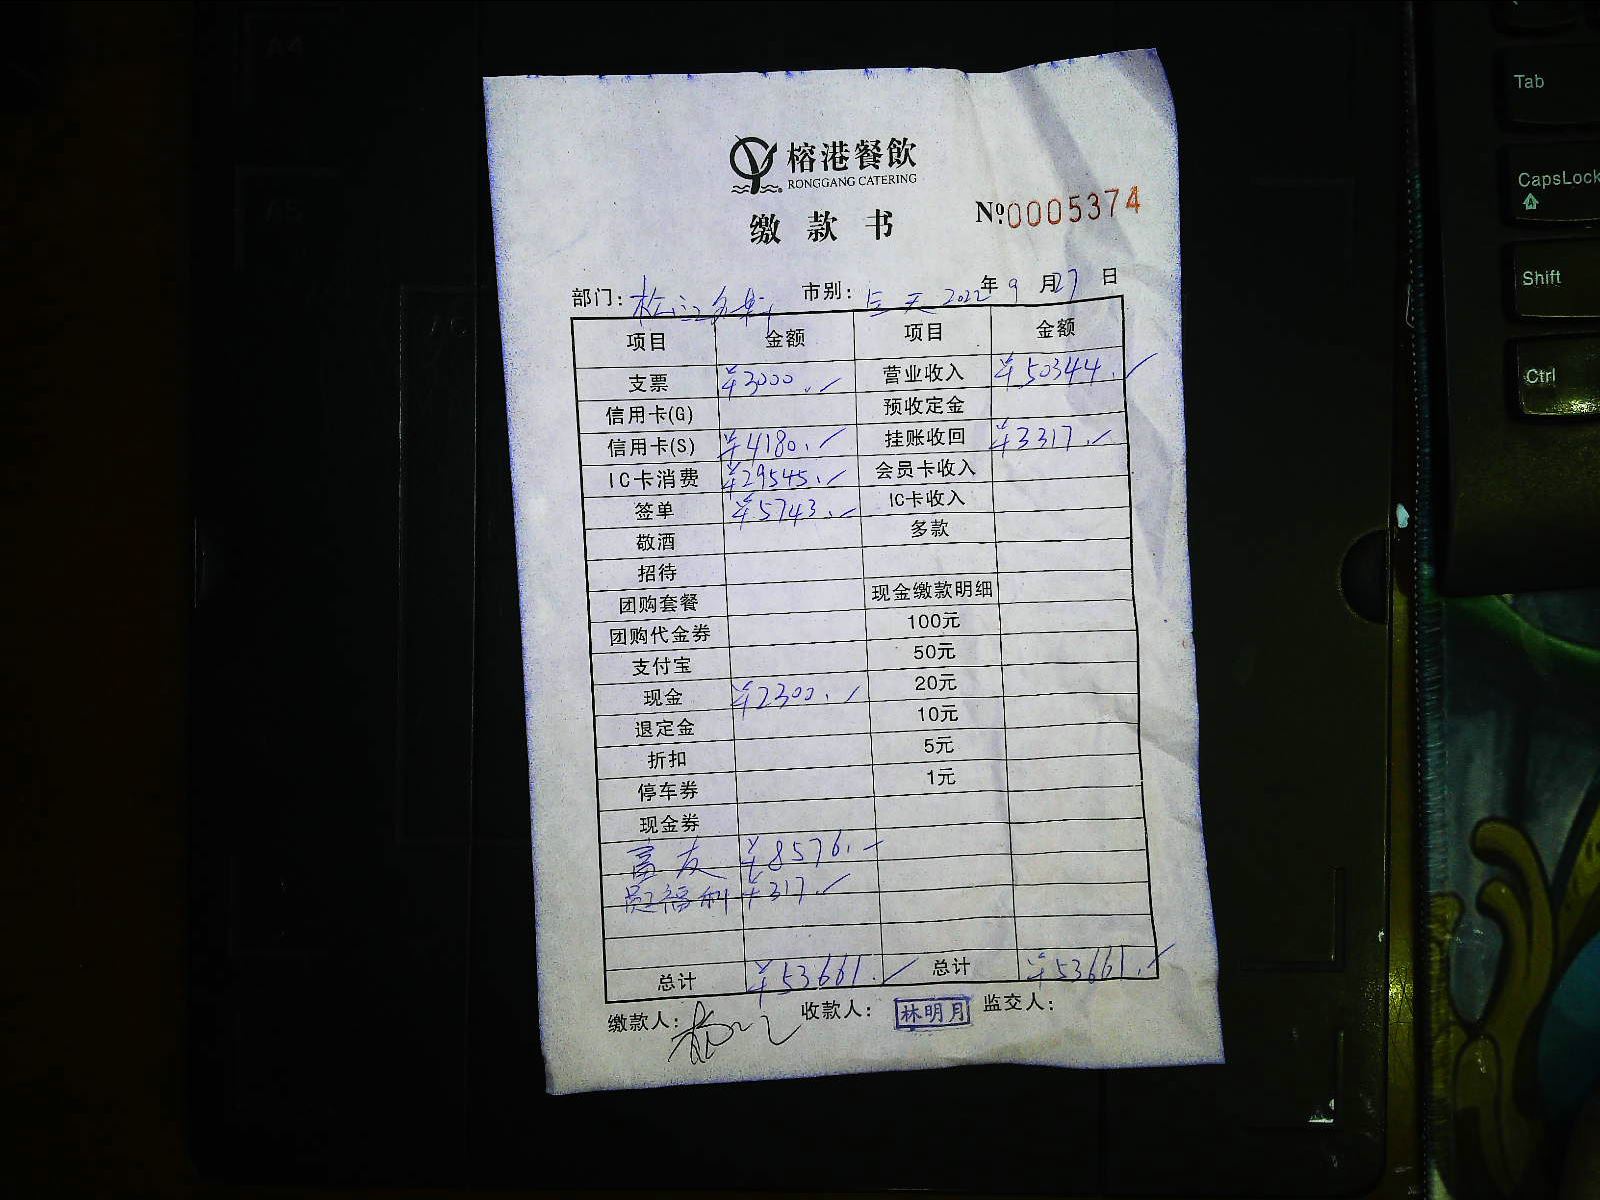 榕港餐飲
RONGGANG CATERING
缴款书
№0005374
部门: 市别: 全天 2022年9月27日
项目 金额 项目 金额
支票 ¥3000. 营业收入 ¥50344.
信用卡(G) 预收定金
信用卡(S) ¥4180. 挂账收回 ¥3317.
IC卡消费 ¥29545. 会员卡收入
签单 ¥5743. IC卡收入
敬酒 多款
招待
团购套餐 现金缴款明细
团购代金券 100元
支付宝 50元
现金 ¥2300. 20元
退定金 10元
折扣 5元
停车券 1元
现金券
富友 ¥8576.
福利 ¥317.
总计 ¥53661. 总计 ¥53661.
缴款人: 收款人: 林明月 监交人:
Tab
CapsLock
A
Shift
Ctrl
A4
A5